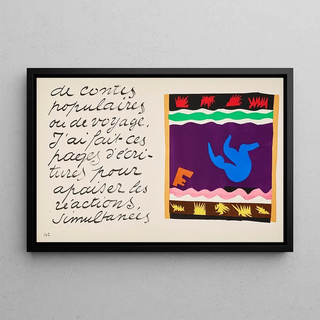 de contes
populaires
ou de voyage.
J'ai fait ces
pages d'écri-
tures pour
apaiser les
réactions,
simultanées
142